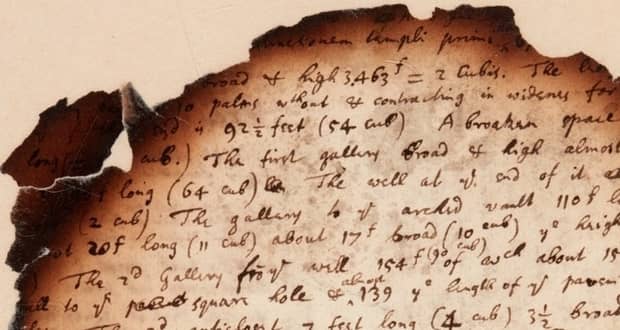 templi prim
broad & high 3,463 f = 2 Cubits. The
10 palms without & contracting in widenes for
end is 92½ feet (54 cub) A broaken space
long cub.) The first gallery broad & high almost
long (64 cub) The well at ye. end of it
(2 cub) The gallery to ye arched vault 110 f
20 f long (11 cub) about 17 f broad (10 cub) ye heigh
) The 2d Gallery fro ye well 154 f (90 cub) of wch about 15
to ye square hole & almost 139 ye length of ye pavem
7 feet long (4 cub) 3½ broad